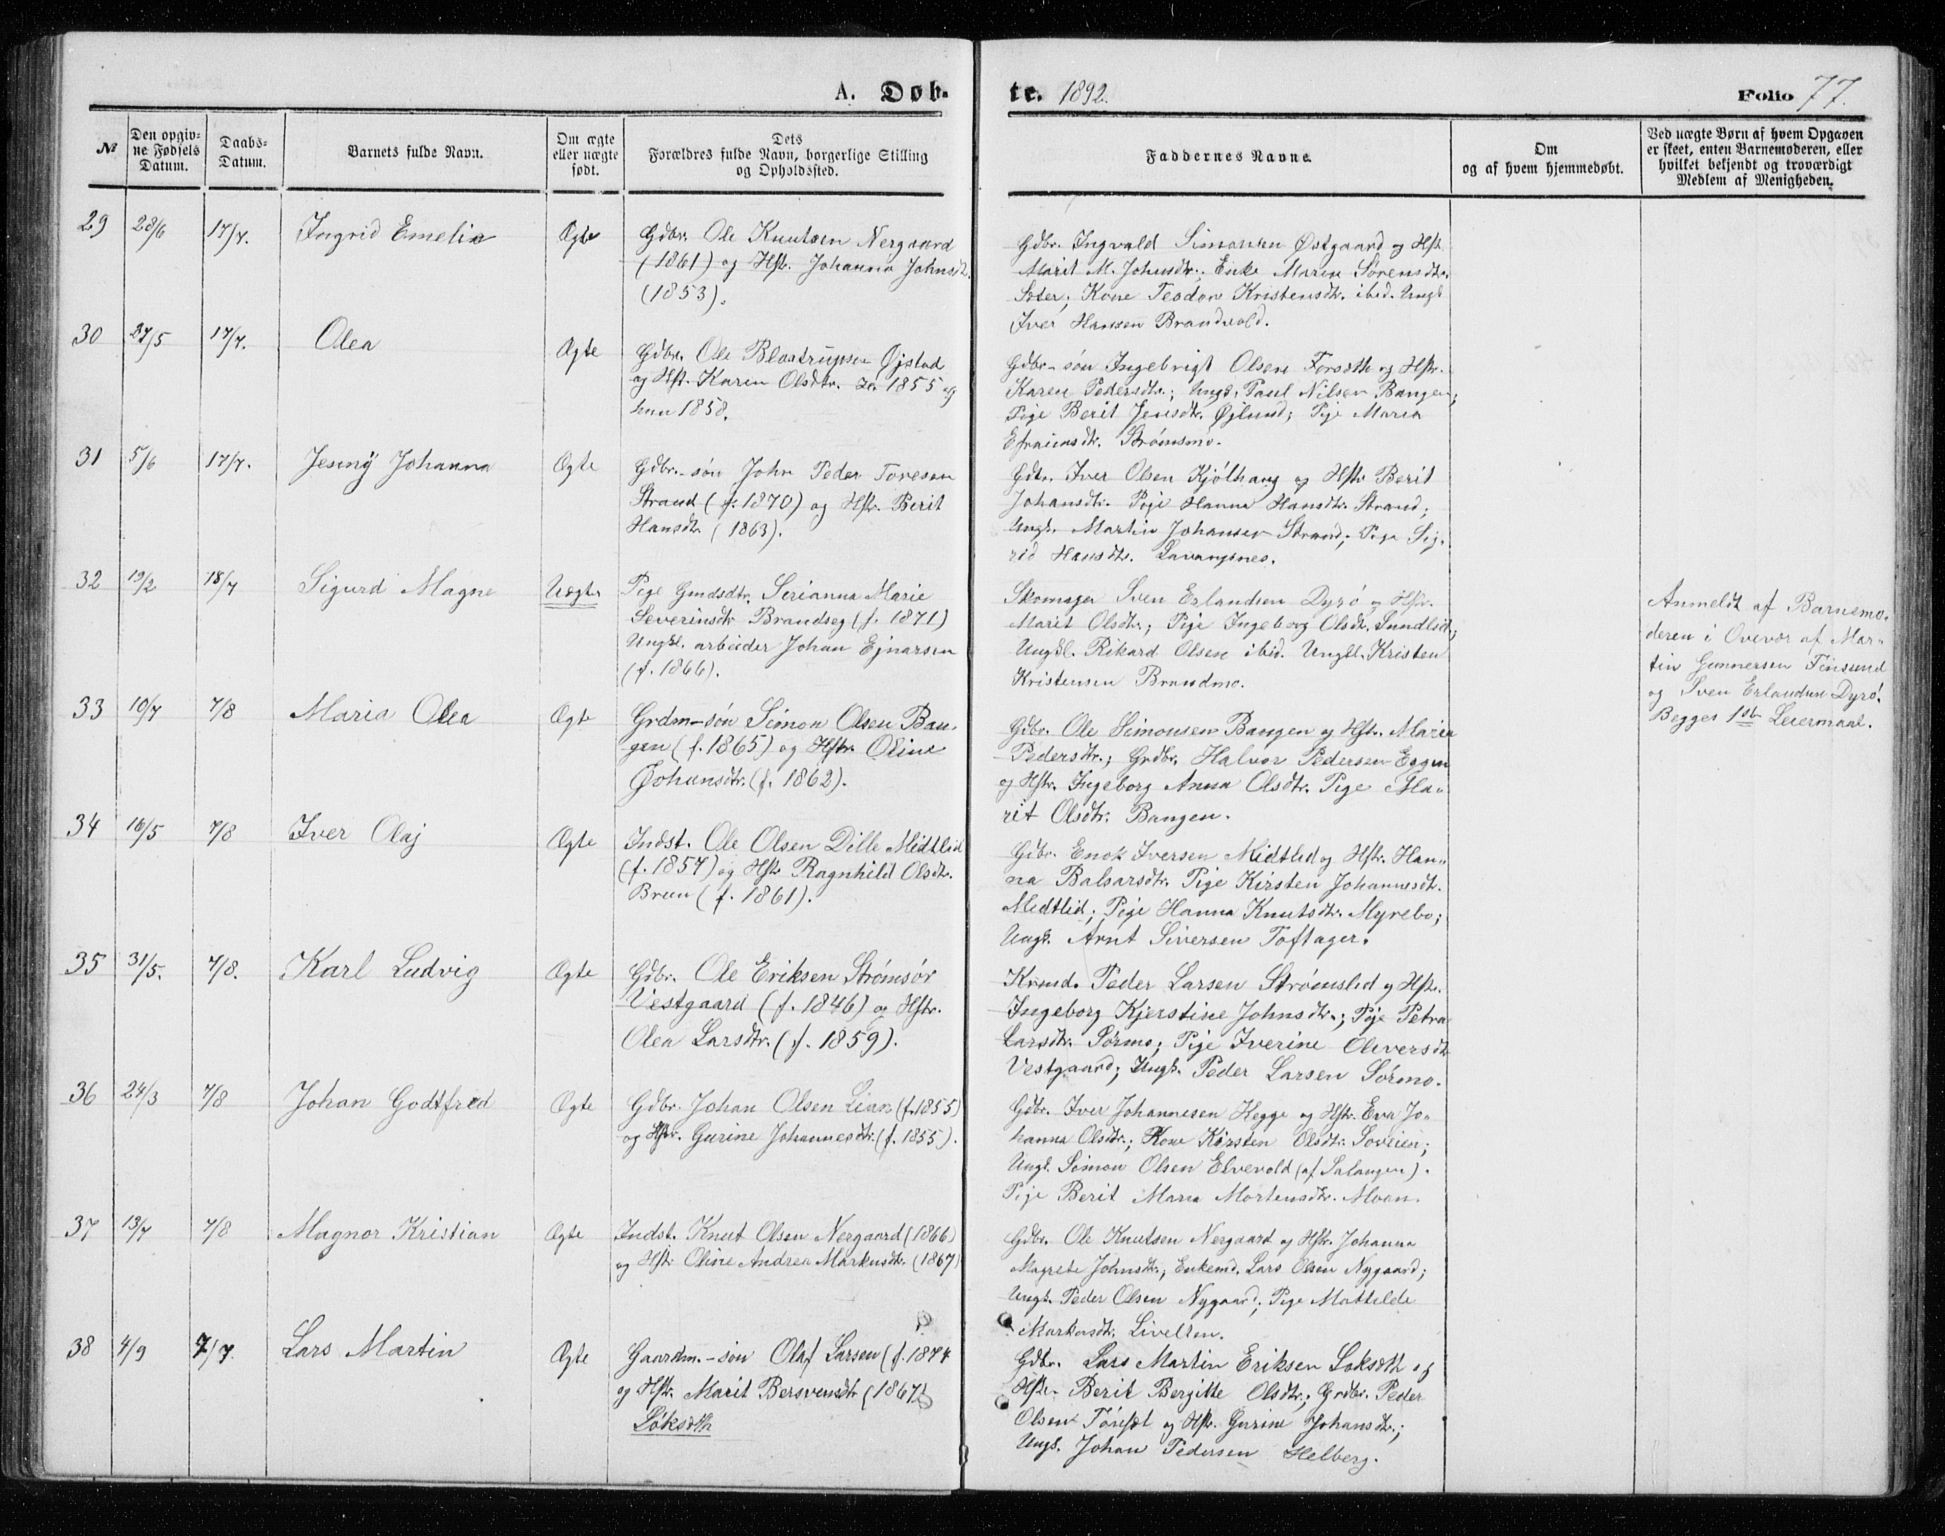 A. Døb-
te. 1892.
Folio 77.
№
Den opgiv-
ne Fødsels
Datum.
Daabs-
Datum.
Barnets fulde Navn.
Om ægte
eller uægte
født.
Dets
Forældres fulde Navn, borgerlige Stilling
og Opholdssted.
Faddernes Navne.
Om
og af hvem hjemmedøbt.
Ved uægte Børn af hvem Opgaven
er skeet, enten Barnemoderen, eller
hvilket bekjendt og troværdigt
Medlem af Menigheden.
29 28/6 17/7. Ingrid Emelie Ægte
Gdbr. Ole Knutsen Nergaard
(1861) og Hstr. Johanna Johnsdt.
(1853).
Gdbr. Ingvald Simonsen Østgaard og Hst.
Marit M. Johnsdtr. Enke Maren Sørensdtr.
Sæter; Kone Teodora Kristensdtr. ibid. Ungk
Iver Hansen Brandvold.
30 27/5 17/7. Olea Ægte
Gdbr. Ole Blostrupsen Øjstad
og Hst. Karen Olsdtr. han 1855 og
hun 1858.
Gdbr-søn Ingebrigt Olsen Forseth og Hstr.
Karen Pedersdtr.; Ungk. Paul Nilsen Bangen;
Pige Berit Jensdtr. Øjlund; Pige Maria
Efraimsdtr. Strømsmo.
31 5/6 17/7. Jenny Johanna Ægte
Gdbr.-søn John Peder Toresen
Strand (f. 1870) og Hstr. Berit
Hansdtr. (1863).
Gdbr. Iver Olsen Kjølhaug og Hstr Berit
Johansdtr. Pige Hanna Hansdtr. Strand;
Ungk. Martin Johansen Strand; Pige Sig-
rid Hansdtr. Lavangsnes.
32 19/2 18/7 Sigurd Magne Uægte
Pige Gmdsdtr. Sirianna Marie
Severinsdtr Brandseg (f. 1871)
Ungkl. arbeider Johan Ejnarsen
(f. 1866).
Skomager Sven Erlandsen Dyrø og Hstr.
Marit Olsdtr.; Pige Ingeborg Olsdtr. Sundlid;
Ungkl. Rikard Olsen ibid. Ungkl. Kristen
Kristensen Brandmo.
Anmeldt af Barnemo-
deren i Overvær af Mar-
tin Gunnersen Finsund
og Sven Erlandsen Dyrø.
Begges 1ste Leiermaal.
33 10/7 7/8 Maria Olea Ægte
Grdm-søn Simon Olsen Ban-
gen (f. 1865) og Hstr. Oline
Johansdtr. (f. 1862).
Gdbr. Ole Simonsen Bangen og Hst. Maria
Pedersdtr.; Grdbr. Halvor Pedersen Eggen
og Hstr. Ingeborg Anna Olsdtr. Pige Ma-
rit Olsdtr. Bangen.
34 16/5 7/8 Iver Olaj Ægte
Indst. Ole Olsen Dille Midtlid
(f. 1857) og Hstr Ragnhild Olsdtr.
Breen (f. 1861).
Gdbr. Enok Iversen Midtlid og Hstr. Han-
na Balsarsdtr. Pige Kirsten Johannesdtr.
Midtlid; Pige Hanna Knutsdtr. Myrebo;
Ungk. Arnt Siversen Toftager.
35 31/5. 7/8. Karl Ludvig Ægte
Gdbr. Ole Eriksen Strømsør
Vestgaard (f. 1846) og Hstr.
Olea Larsdtr. (f. 1859).
Krmd. Peder Larsen Strømslid og Hstr.
Ingeborg Kjerstine Johnsdtr.; Pige Petra
Larsdtr. Sørmo; Pige Iverine Oliversdtr
Vestgaard; Ungk. Peder Larsen Sørmo.
36 24/3 7/8 Johan Godtfred Ægte
Gdbr. Johan Olsen Lian (f. 1855)
og Hstr. Gurine Johannesdtr. (f. 1855).
Gdbr. Iver Johannesen Hegge og Hstr. Eva Jo-
hanna Olsdtr.; Kone Kirsten Olsdtr. Soveien;
Ungk. Simon Olsen Elvevold (af Salangen).
Pige Berit Maria Mortensdtr. Moen.
37 13/7 7/8 Magnor Kristian Ægte
Indst. Knut Olsen Nergaard (1866)
og Hstr Oline Andrea Markusdtr. (1867)
Gdbr. Ole Knutsen Nergaard og Hstr. Johanna
Magrete Johnsdtr.; Enkemd. Lars Olsen Nygaard;
Ungk. Peder Olsen Nygaard; Pige Mattilde
Markusdtr. Livelten.
38 4/9 7/7. Lars Martin Ægte
Gaardm.-søn Olaf Larsen (f. 1874
og Hstr. Marit Bersvendsdtr (1867)
Løkseth
Gdbr. Lars Martin Eriksen Løkseth og
Hstr. Berit Bergitte Olsdtr.; Grdbr. Peder
Olsen Fôrset og Hstr. Gurine Johansdtr.;
Ungk. Johan Pedersen Helberg.